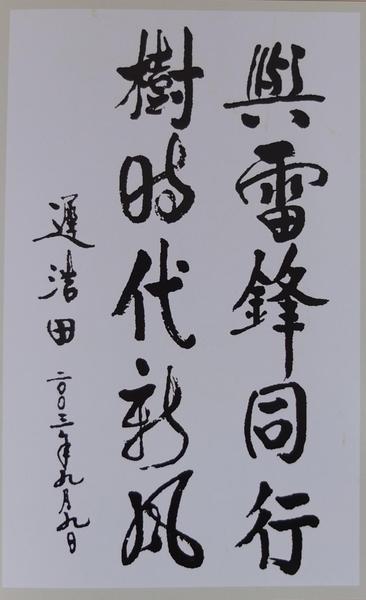 與雷鋒同行
樹時代新風
遲浩田
二〇〇三年九月九日